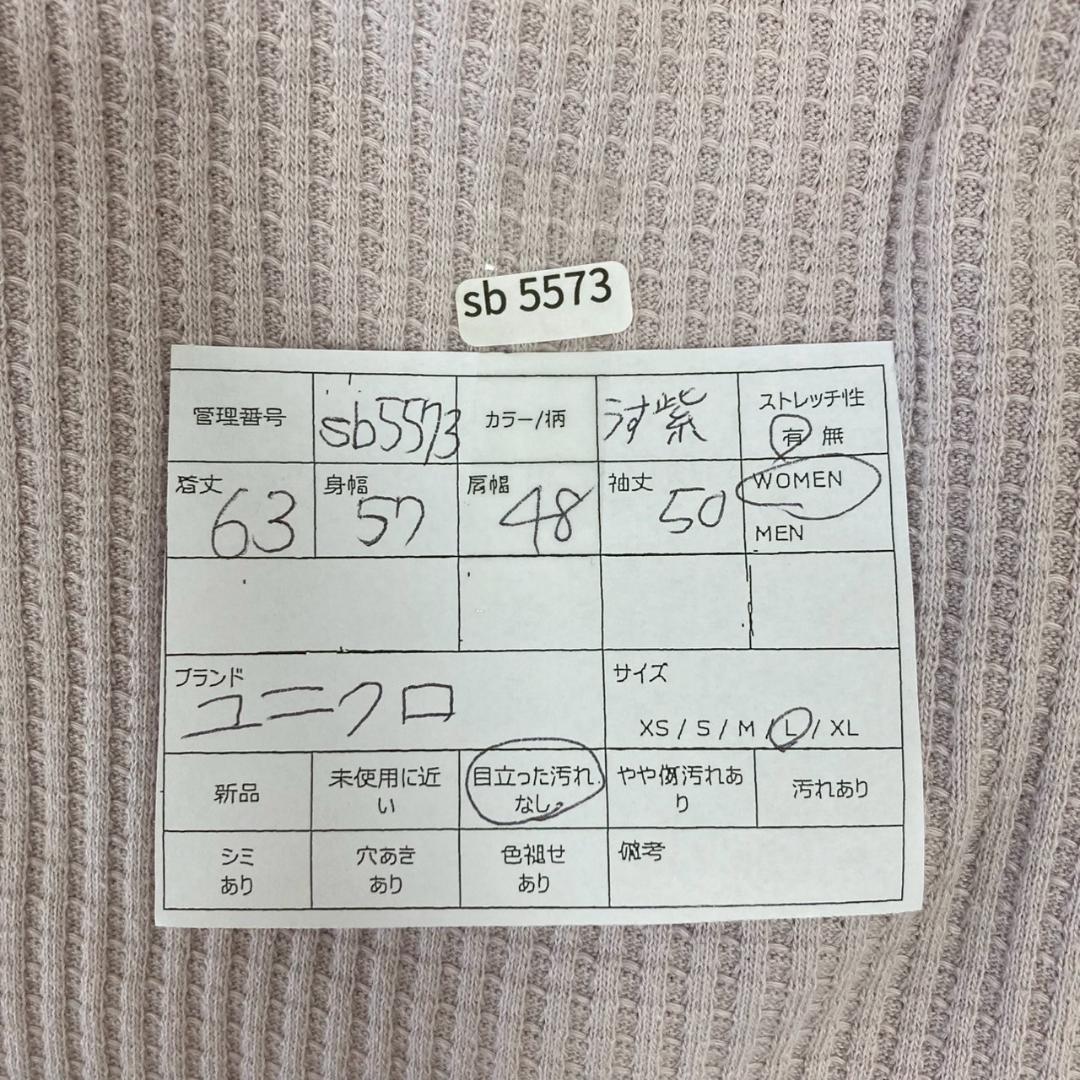 sb 5573
管理番号 sb5573 カラー/柄 うす紫 ストレッチ性
有 無
着丈 63 身幅 57 肩幅 48 袖丈 50 WOMEN
MEN
ブランド
ユニクロ
サイズ
XS / S / M / L / XL
新品
未使用に近
い
目立った汚れ
なし。
やや傷汚れあ
り
汚れあり
シミ
あり
穴あき
あり
色褪せ
あり
備考